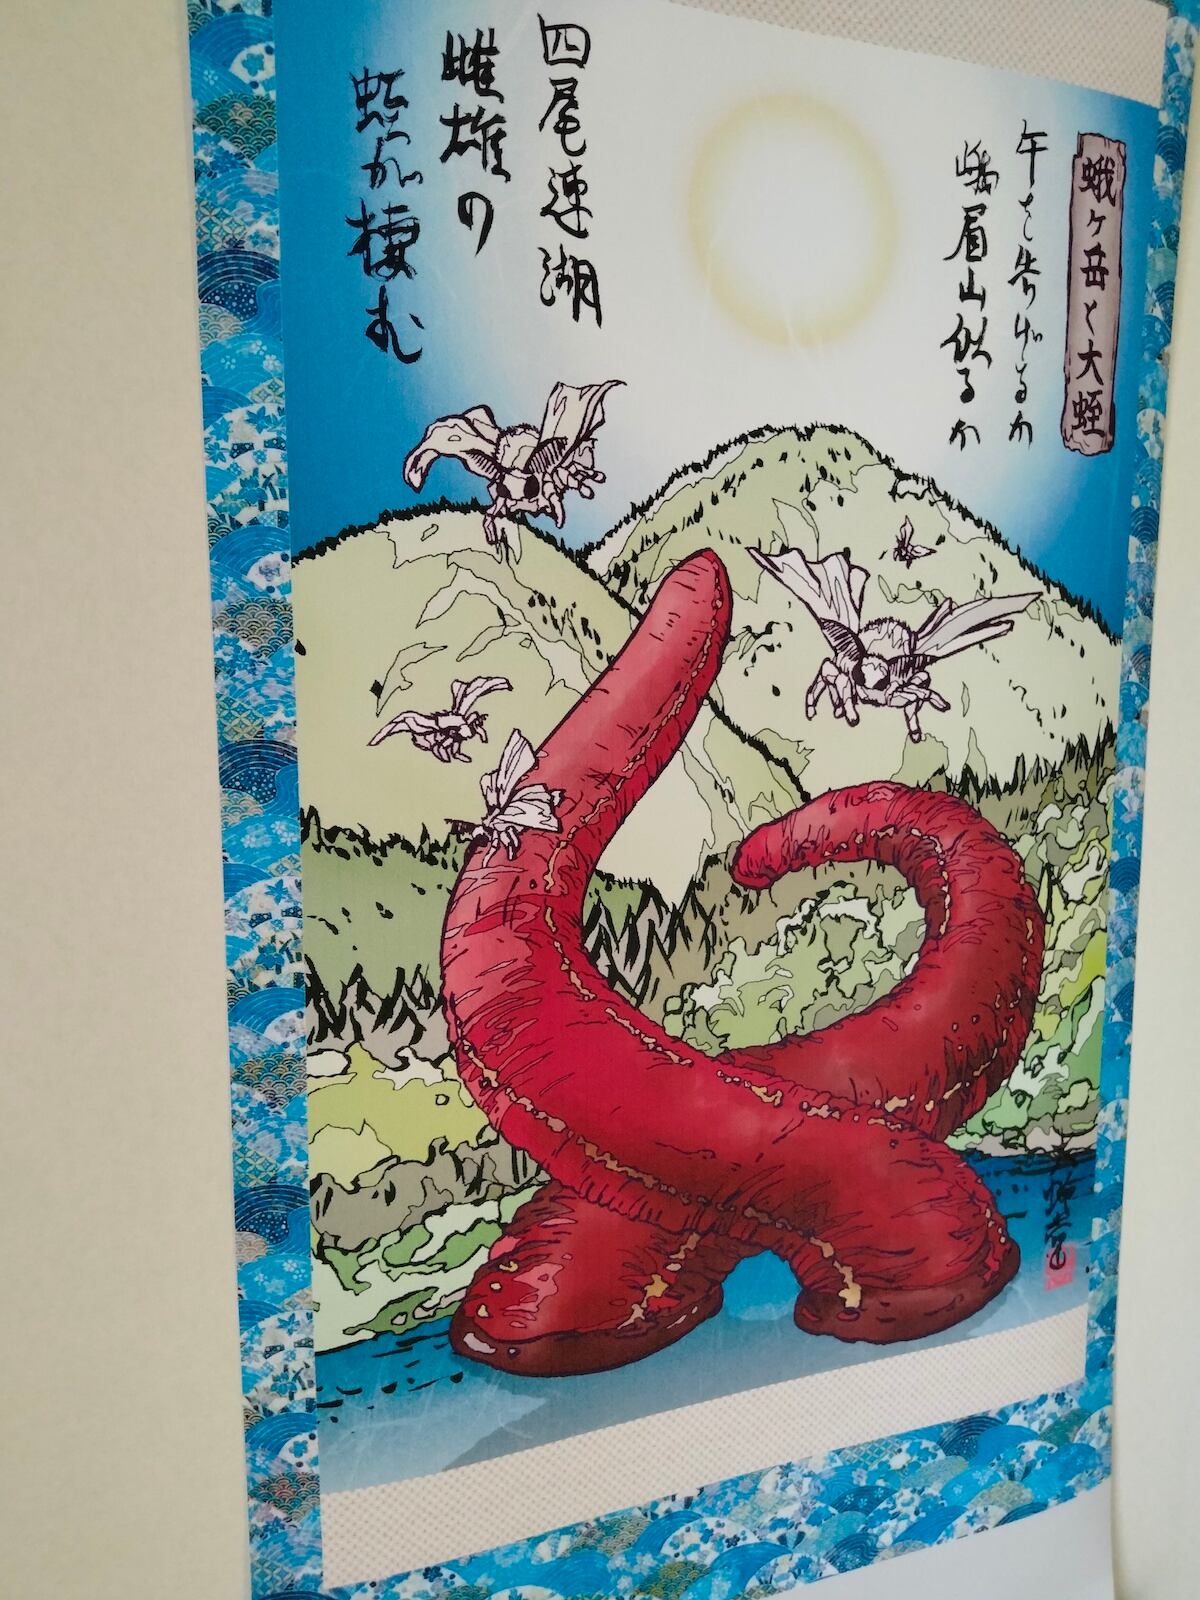 蛾ヶ岳と大蛭
午を告げるか
峨眉山似るか
四尾連湖
雌雄の
蛭が棲む